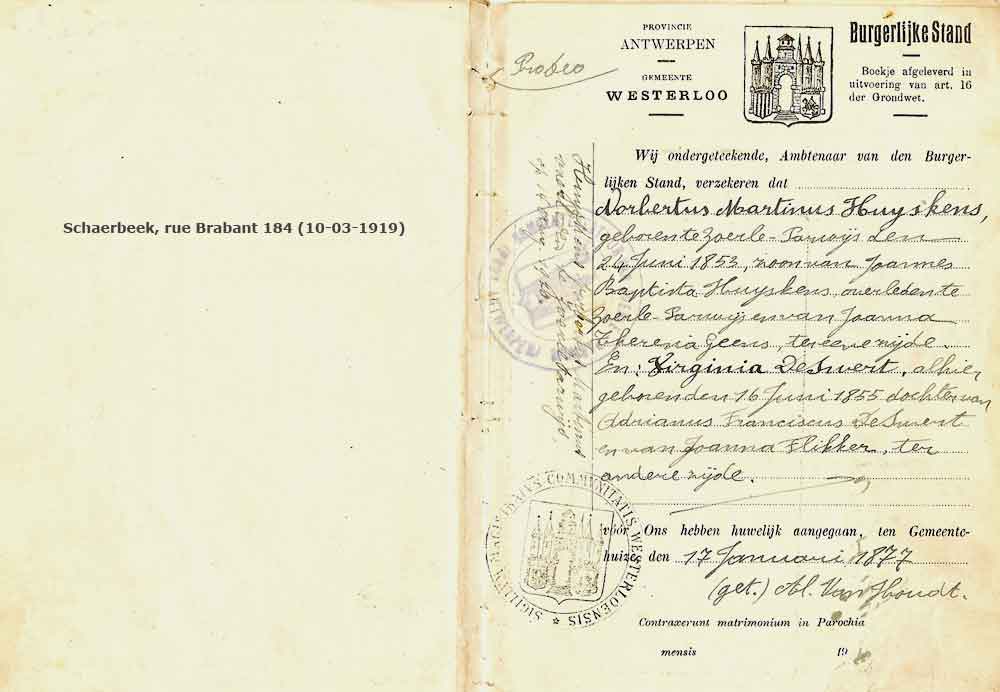 Schaerbeek, rue Brabant 184 (10-03-1919)
Probeo
PROVINCIE
ANTWERPEN
GEMEENTE
WESTERLOO
Burgerlijke Stand
Boekje afgeleverd in
uitvoering van art. 16
der Grondwet.
Wij ondergeteekende, Ambtenaar van den Burger-
lijken Stand, verzekeren dat
Norbertus Martinus Huyskens,
geboren te Zoerle-Parwijs den
24 Juni 1853, zoon van Joannes
Baptista Huyskens, overleden te
Zoerle-Parwijs en van Joanna
Theresia Geens, ter eene zijde.
En: Virginia De Swert, alhier
geboren den 16 Juni 1855 dochter van
Adrianus Franciscus De Swert
en van Joanna Flikker, ter
andere zijde.
vóór Ons hebben huwelijk aangegaan, ten Gemeente-
huize den 17 Januari 1877
(get.) Al. Van Thoudt.
Contraxerunt matrimonium in Parochia
mensis 19
SIGILLUM COMMUNITATIS WESTERLOENSIS